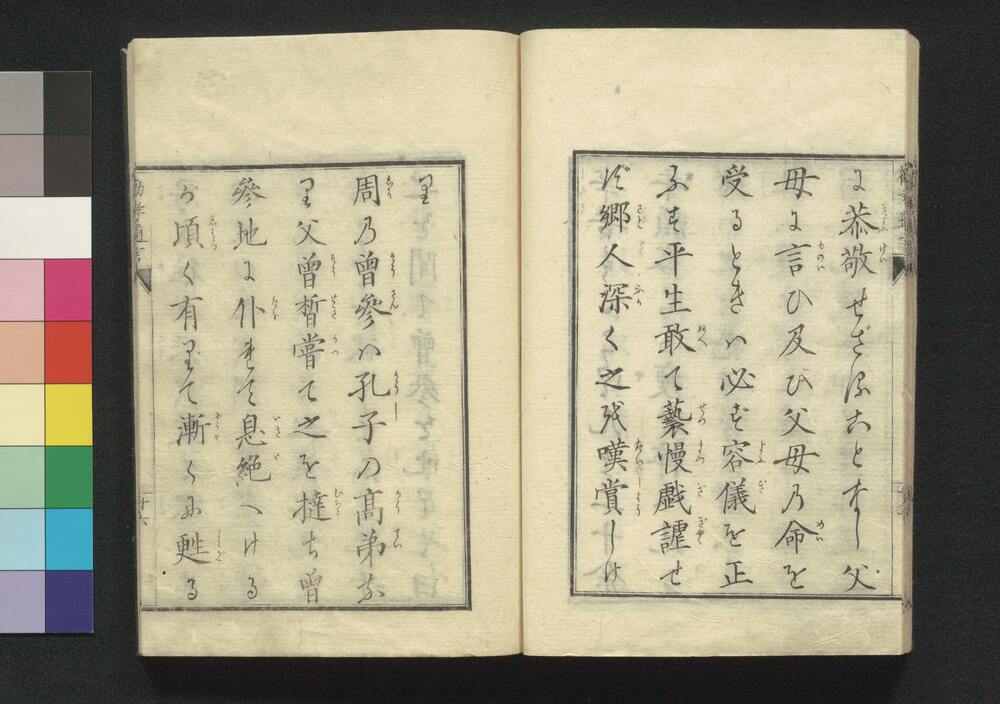 に恭敬せざることなし父
母に言ひ及び父母の命を
受るときハ必ず容儀を正
ふす平生敢て褻慢戯謔せ
ず郷人深く之を嘆賞しけ
り
周の曾參ハ孔子の高弟な
り父曾晳嘗て之を撻ち曾
參地に仆れて息絶へける
が頃く有りて漸くに甦る
十六